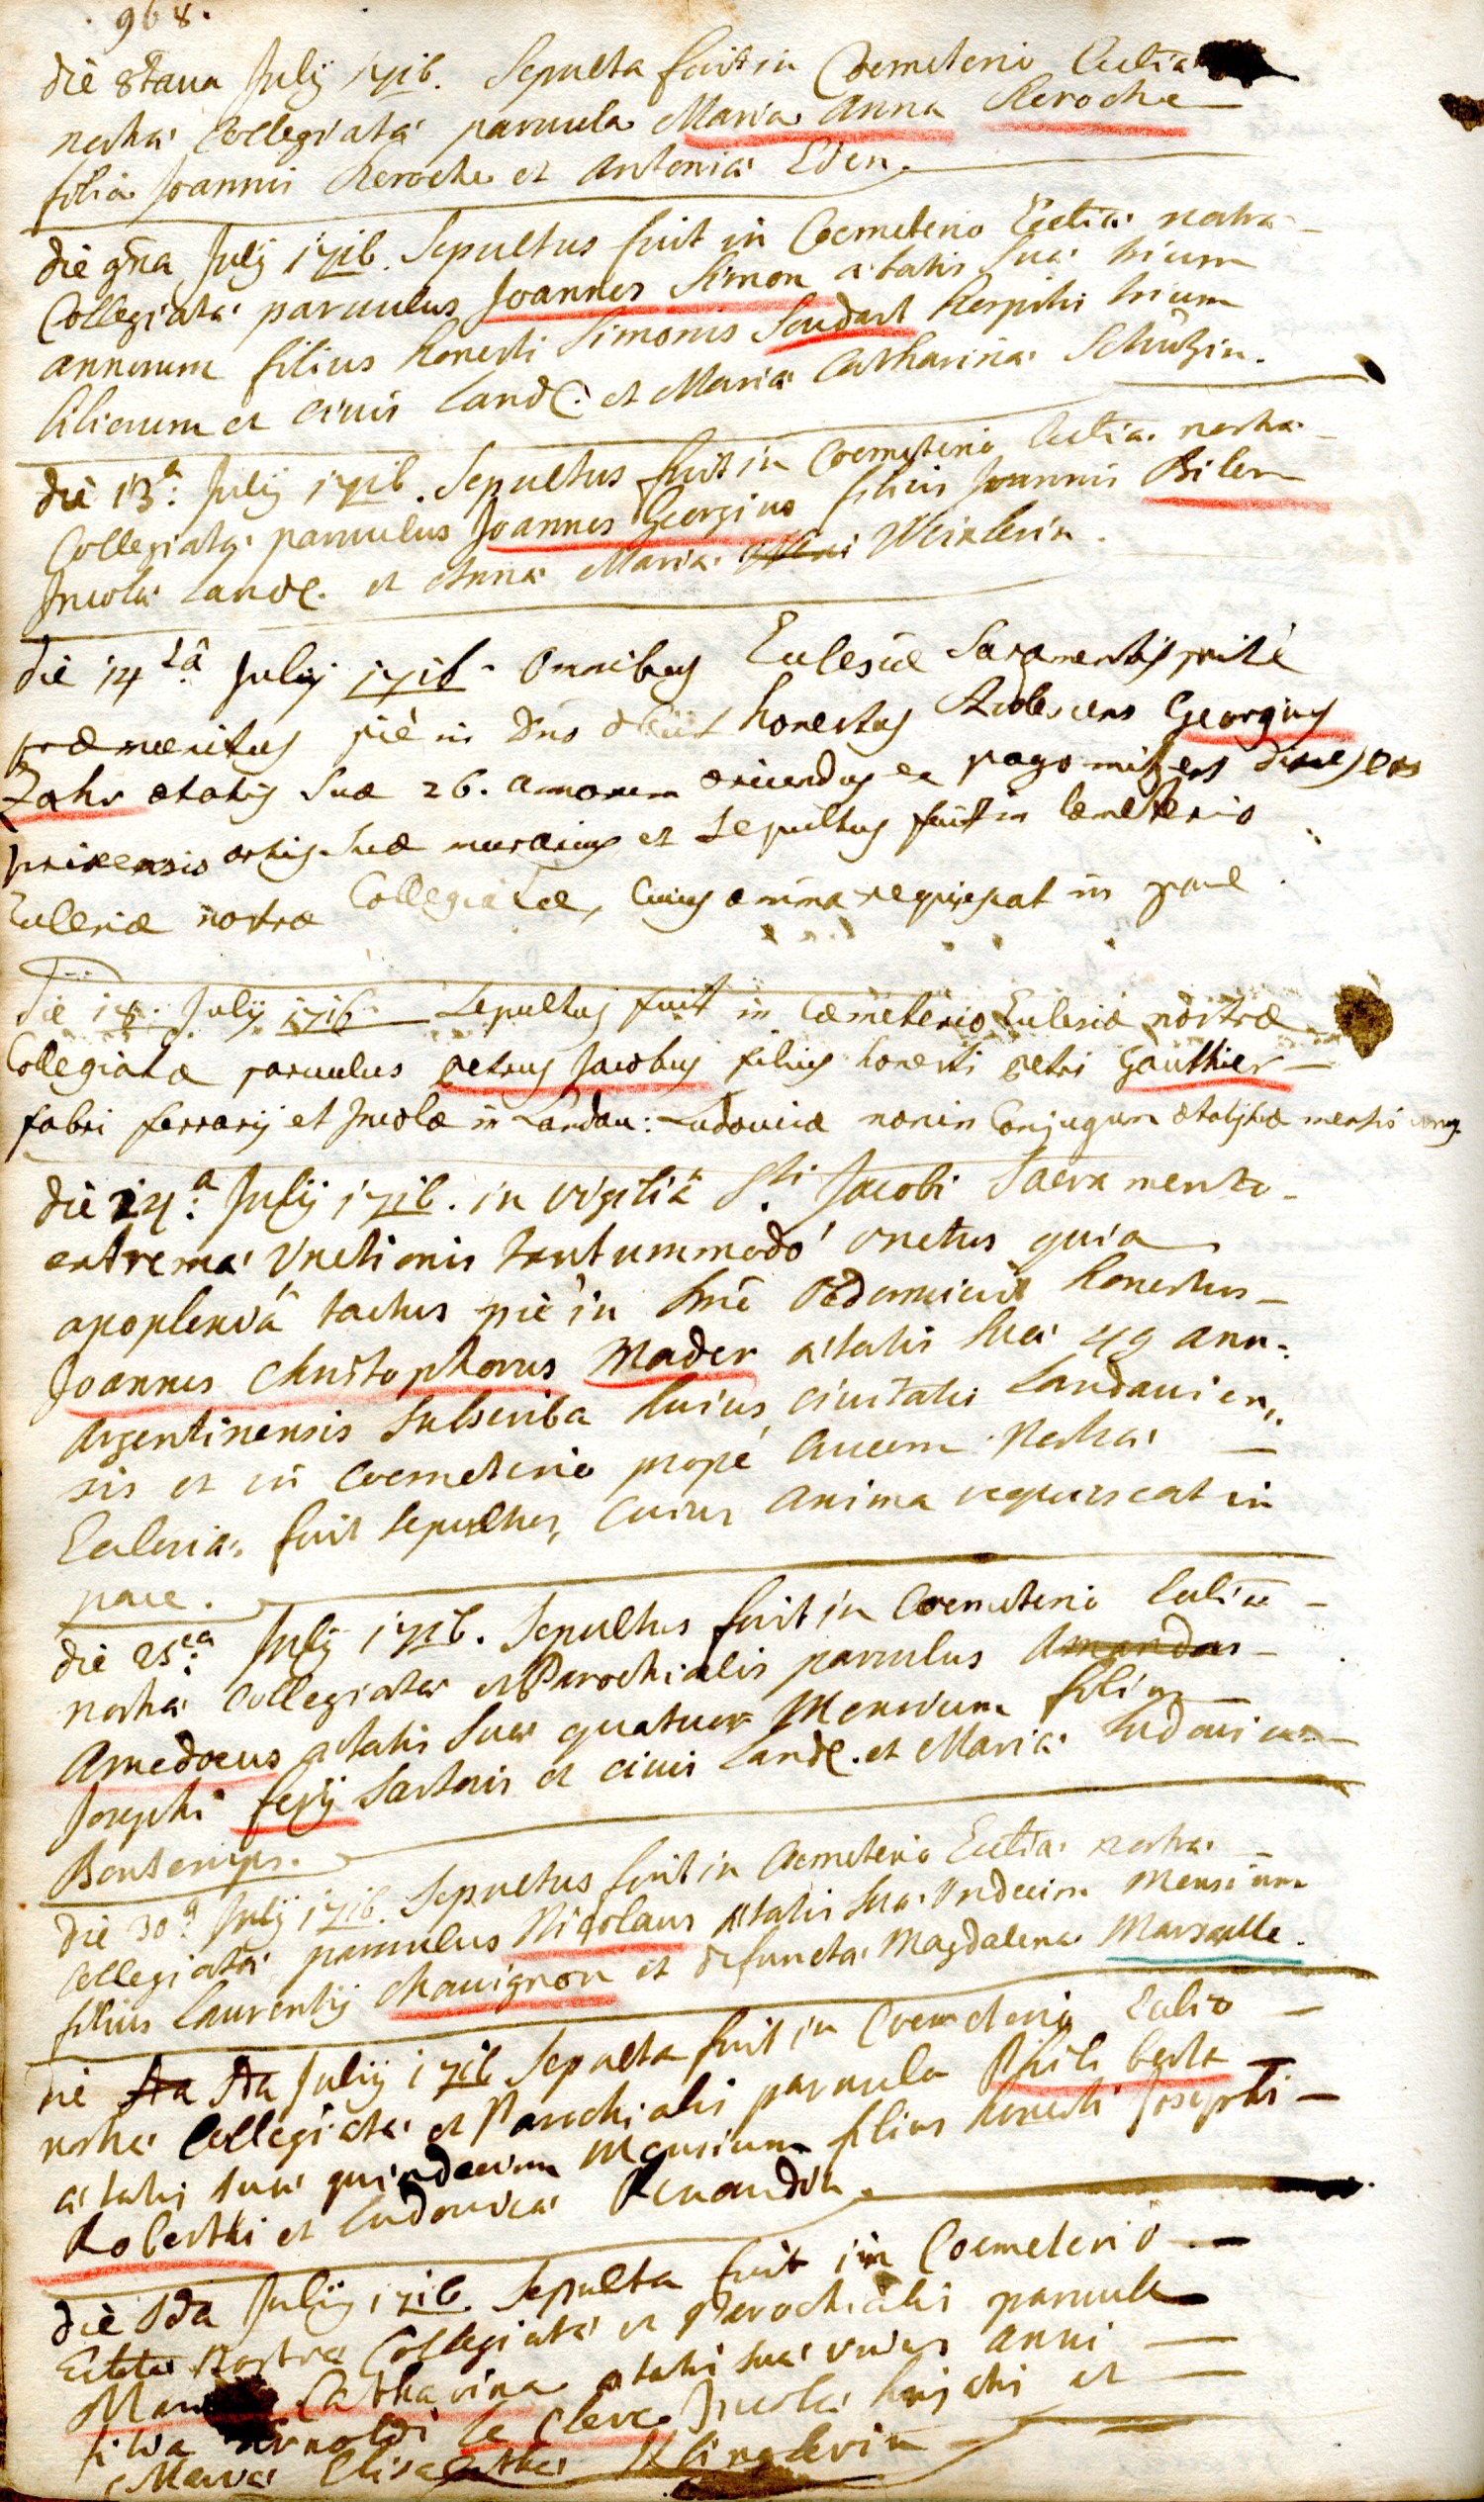 968.
die 8tava July 1716. Sepulta fuit in Coemeterio Eccliæ
nostræ Collegiatæ parvula Maria Anna Keroche
filia Joannis Keroche et Antoniæ Eden.
die 9na July 1716. Sepultus fuit in Coemeterio Eccliæ nostræ
Collegiatæ parvulus Joannes Simon ætatis suæ trium
annorum filius honesti Simonis Seudart hospitis trium
liliorum et civis Land. et Mariæ Catharinæ Schützin.
die 13a: July 1716. Sepultus fuit in Coemeterio Eccliæ nostræ
Collegiatæ parvulus Joannes Georgius filius Joannis Biler
Incolæ Land. et Annæ Mariæ Weixlerin.
Die 14ta July 1716. Omnibus Eclesiæ Sacramentis ritè
præmunitus piè in Dno obiit honestus Adolescens Georgius
Zahr ætatis suæ 26. annorum oriundus ex pago
artis suæ murarius et sepultus fuit in Cœmeterio
Eclesiæ nostræ Collegiatæ, cuius anima requiescat in pace.
Die 18. July 1716. Sepultus fuit in Cæmeterio Eclesiæ nostræ
Collegiatæ parvulus petrus Jacobus filius honesti petri Gauthier
fabri ferrarij et Incolæ in Landau: Ludovicæ nonin Conjugum ætatis suæ mensis
die 24.a July 1716. in vigiliâ Sti Jacobi Sacramento
extremæ Unctionis tantummodò unctus quia
apoplexiâ tactus piè in Dno obdormivit honestus
Joannes Christophorus Mader ætatis suæ 49 ann:
Argentinensis Subscriba huius civitatis Landavien,,
sis et in Coemeterio propè Crucem nostræ
Ecclesiæ fuit sepultus, Cuius anima requiescat in
pace.
die 25ta July 1716. Sepultus fuit in Coemeterio Eccliæ
nostræ Collegiatæ et Parochialis parvulus Amandus
Amedoeus ætatis suæ quatuor Mensium filius
Josephi fejij Sartoris et civis Land. et Mariæ Ludovicæ
Bontemps.
die 30a July 1716. Sepultus fuit in Cæmeterio Eccliæ nostræ
Collegiatæ parvulus Nicolaus ætatis suæ Undecim Mensium
filius Laurentij Chavignon et defunctæ Magdalenæ Marsalle.
die July 1716 Sepulta fuit in Coemeterio Eccliæ
nostræ Collegiatæ et Parochialis parvula Philiberta
ætatis suæ quindecim Mensium filias honesti Josephi
Roberthi et Ludovicæ Renaudin.
die July 1716. Sepulta fuit in Coemeterio
Eccliæ nostræ Collegiatæ et Parochialis parvula
Maria Catharina ætatis suæ unius Anni
filia Arnoldi le Clerc Incolæ hujatis et
Mariæ Elisabethæ Klinglerin